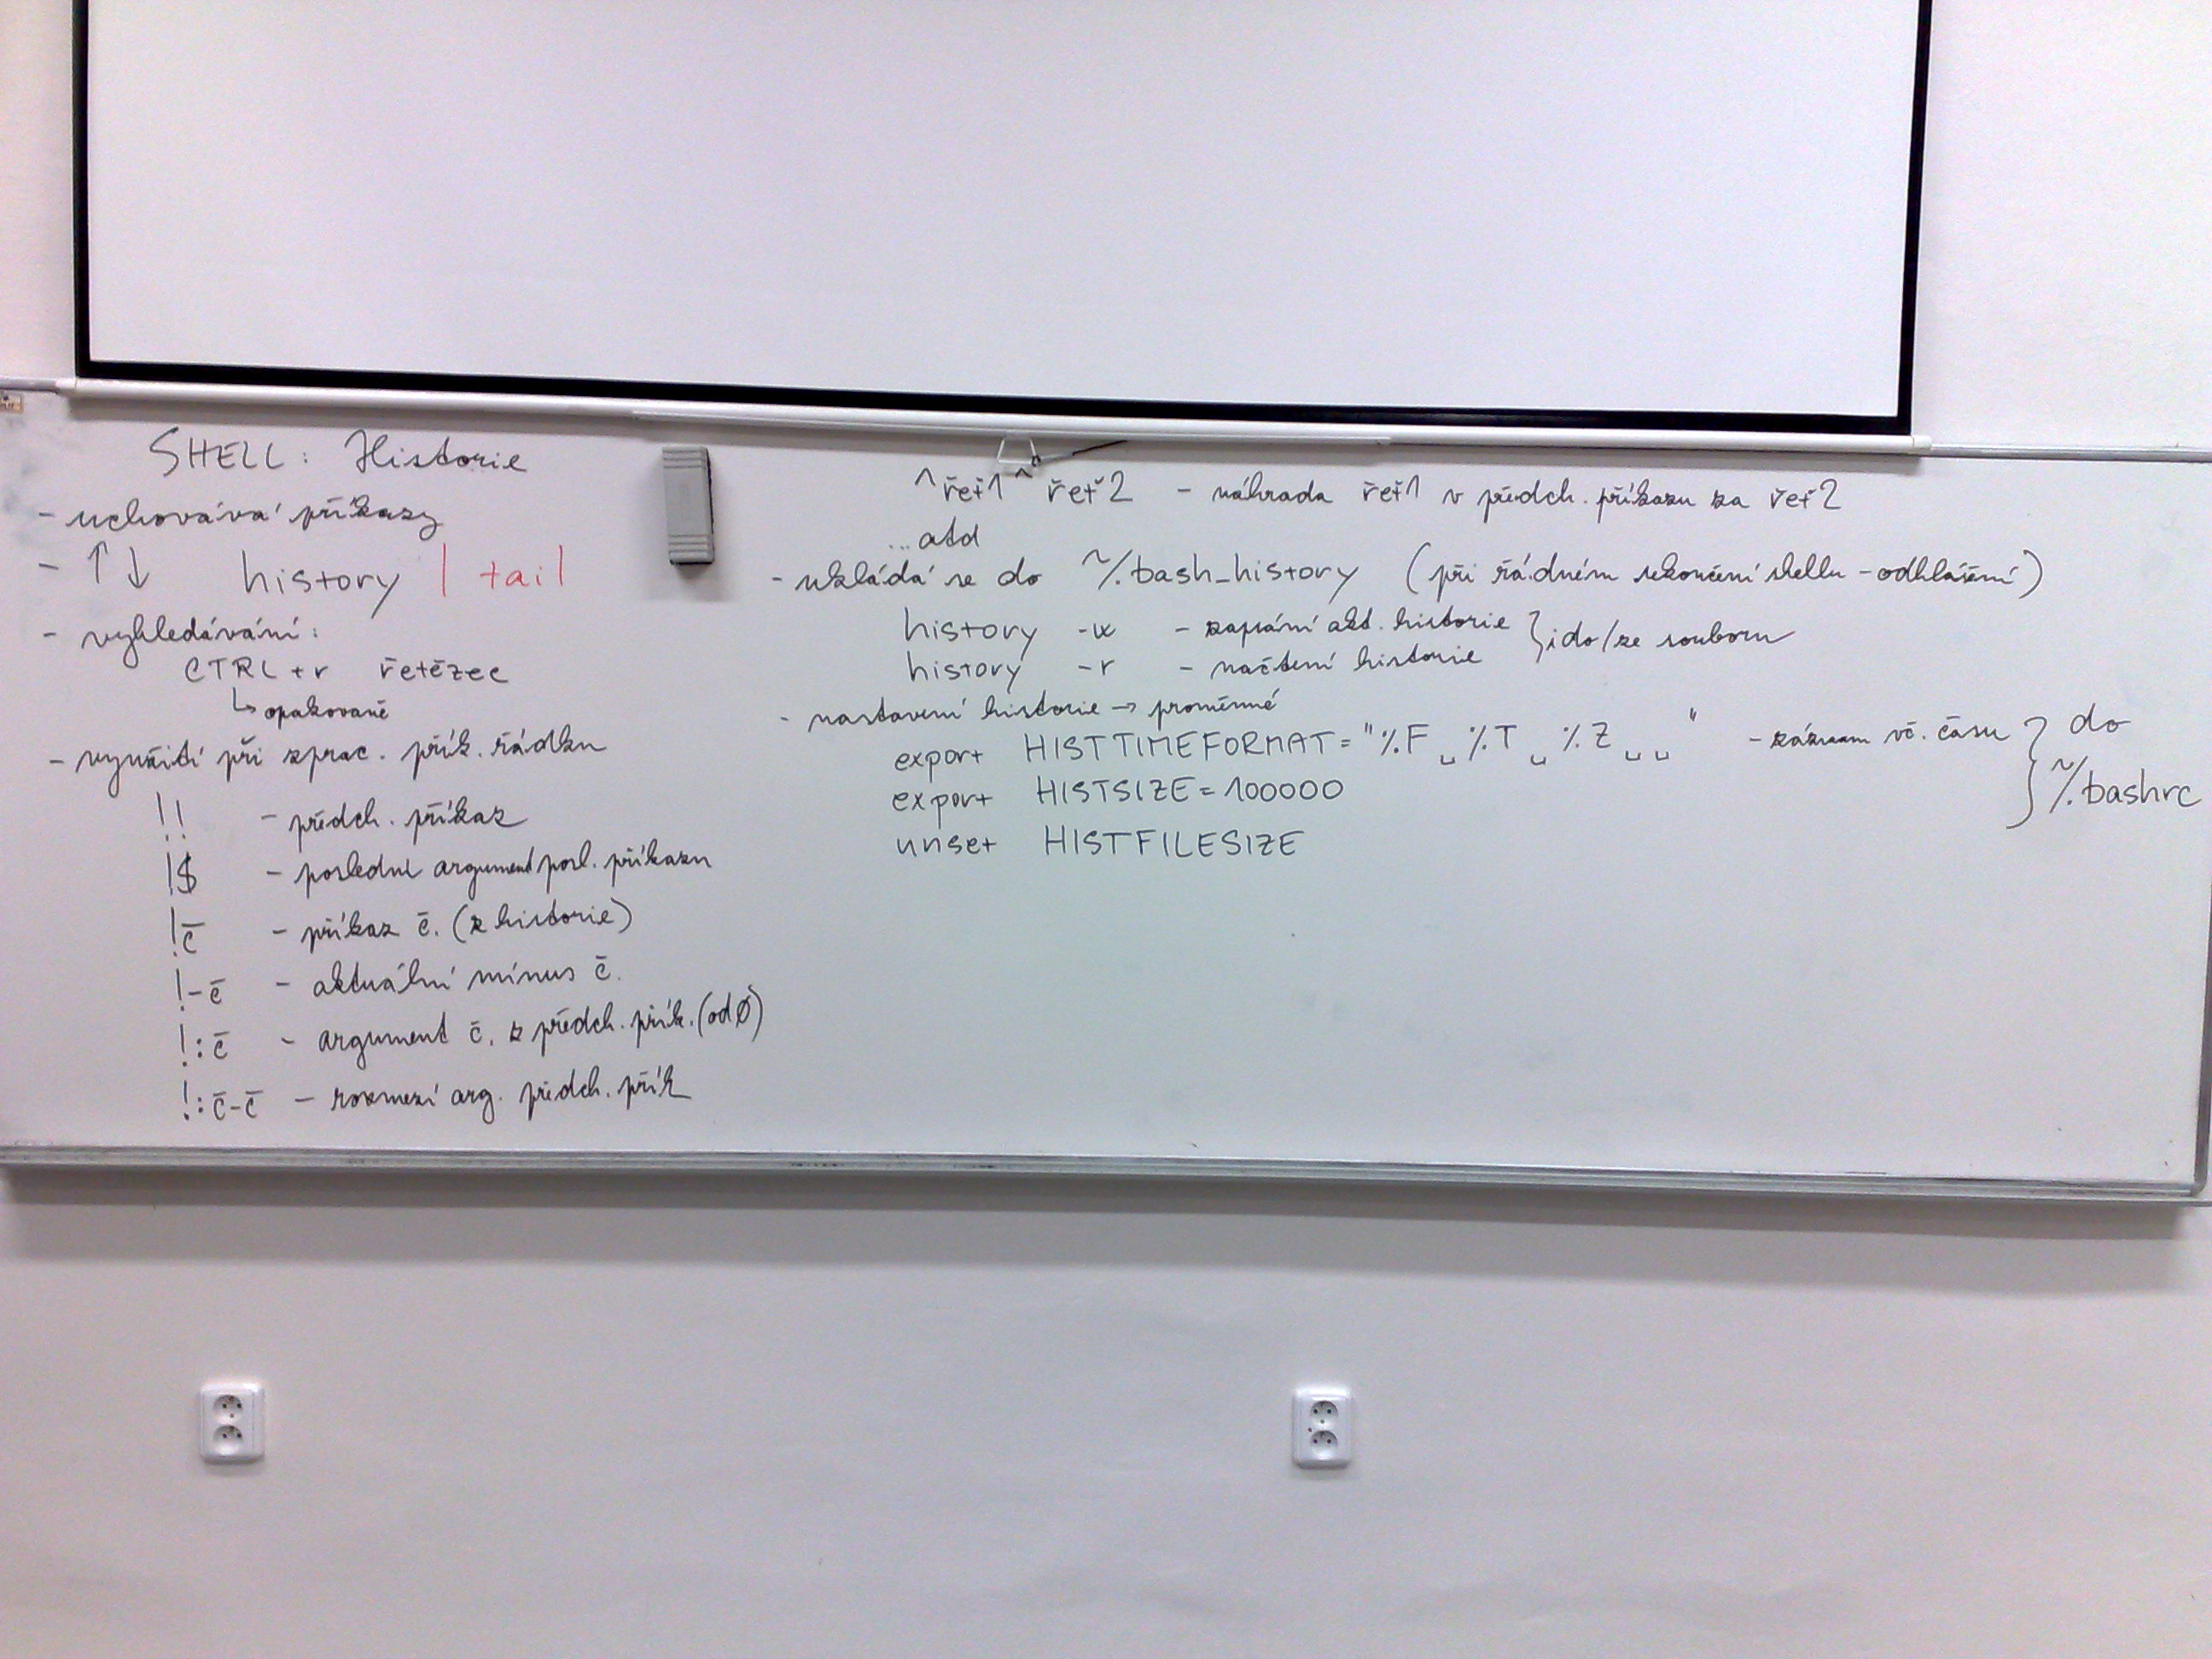 SHELL: Historie
- uchovává příkazy
- ↑↓ history | tail
- vyhledávání:
CTRL+r řetězec
↳ opakovaně
- využití při zprac. přík. řádku
!! - předch. příkaz
!$ - poslední argument posl. příkazu
!č - příkaz č. (z historie)
!-č - aktuální mínus č.
!:č - argument č. z předch. přík. (od 0)
!:č-č - rozmezí arg. předch. přík
^řeť1^řeť2 - náhrada řeť1 v předch. příkazu za řeť2
...atd
- ukládá se do ~/.bash_history (při řádném ukončení shellu - odhlášení)
history -w - zapsání akt. historie } do/ze souboru
history -r - načtení historie
- nastavení historie → proměnné
export HISTTIMEFORMAT="%F␣%T␣%Z␣␣" - záznam vč. času } do ~/.bashrc
export HISTSIZE=100000
unset HISTFILESIZE